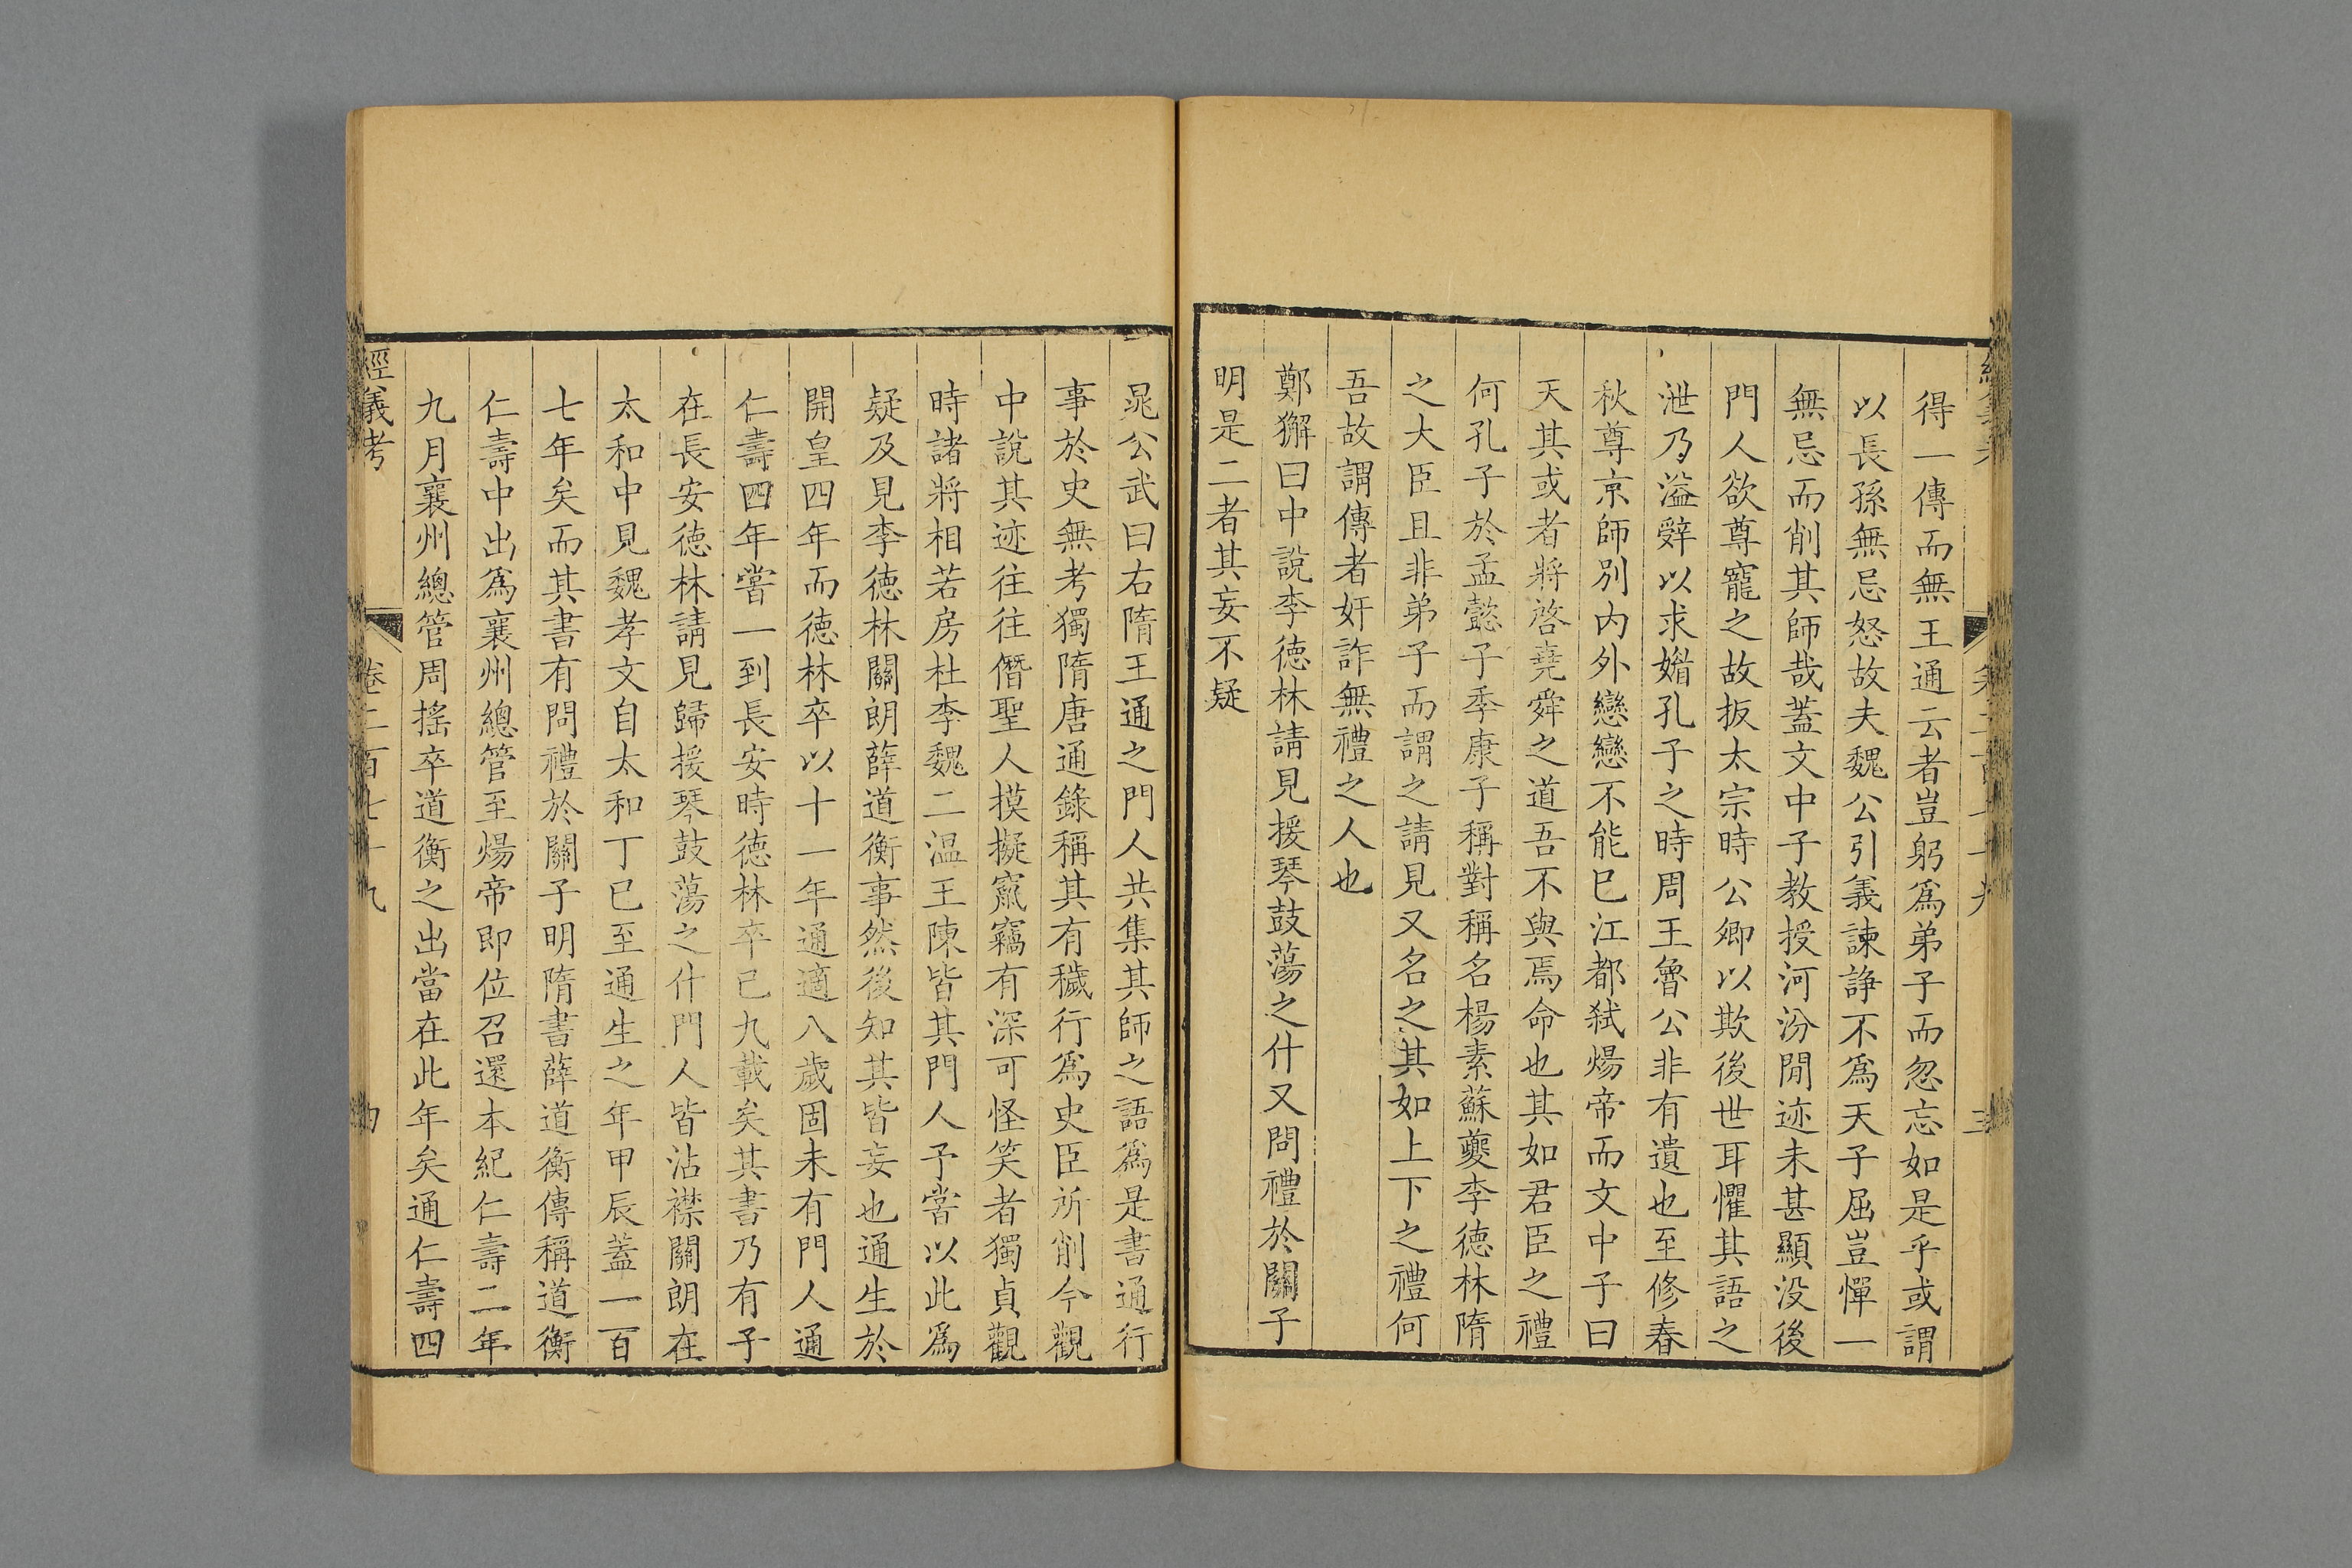 得一傳而無王通云者豈躬爲弟子而忽忘如是乎或謂
以長孫無忌怒故夫魏公引義諫諍不爲天子屈豈憚一
無忌而削其師哉葢文中子教授河汾閒迹未甚顯没後
門人欲尊寵之故扳太宗時公卿以欺後世耳懼其語之
泄乃溢辭以求媚孔子之時周王魯公非有遺也至修春
秋尊京師別内外戀戀不能已江都弒煬帝而文中子曰
天其或者將啓堯舜之道吾不與焉命也其如君臣之禮
何孔子於孟懿子季康子稱對稱名楊素蘇夔李德林隋
之大臣且非弟子而謂之請見又名之其如上下之禮何
吾故謂傳者奸詐無禮之人也
鄭獬曰中說李德林請見援琴鼓蕩之什又問禮於關子
明是二者其妄不疑
晁公武曰右隋王通之門人共集其師之語爲是書通行
事於史無考獨隋唐通錄稱其有穢行爲史臣所削今觀
中說其迹往往僭聖人摸擬竄竊有深可怪笑者獨貞觀
時諸將相若房杜李魏二温王陳皆其門人予嘗以此爲
疑及見李德林關朗薛道衡事然後知其皆妄也通生於
開皇四年而德林卒以十一年通適八歲固未有門人通
仁壽四年嘗一到長安時德林卒已九載矣其書乃有子
在長安德林請見歸援琴鼓蕩之什門人皆沾襟關朗在
太和中見魏孝文自太和丁巳至通生之年甲辰葢一百
七年矣而其書有問禮於關子明隋書薛道衡傳稱道衡
仁壽中出爲襄州總管至煬帝即位召還本紀仁壽二年
九月襄州總管周摇卒道衡之出當在此年矣通仁壽四
經義考 卷二百七十九 四